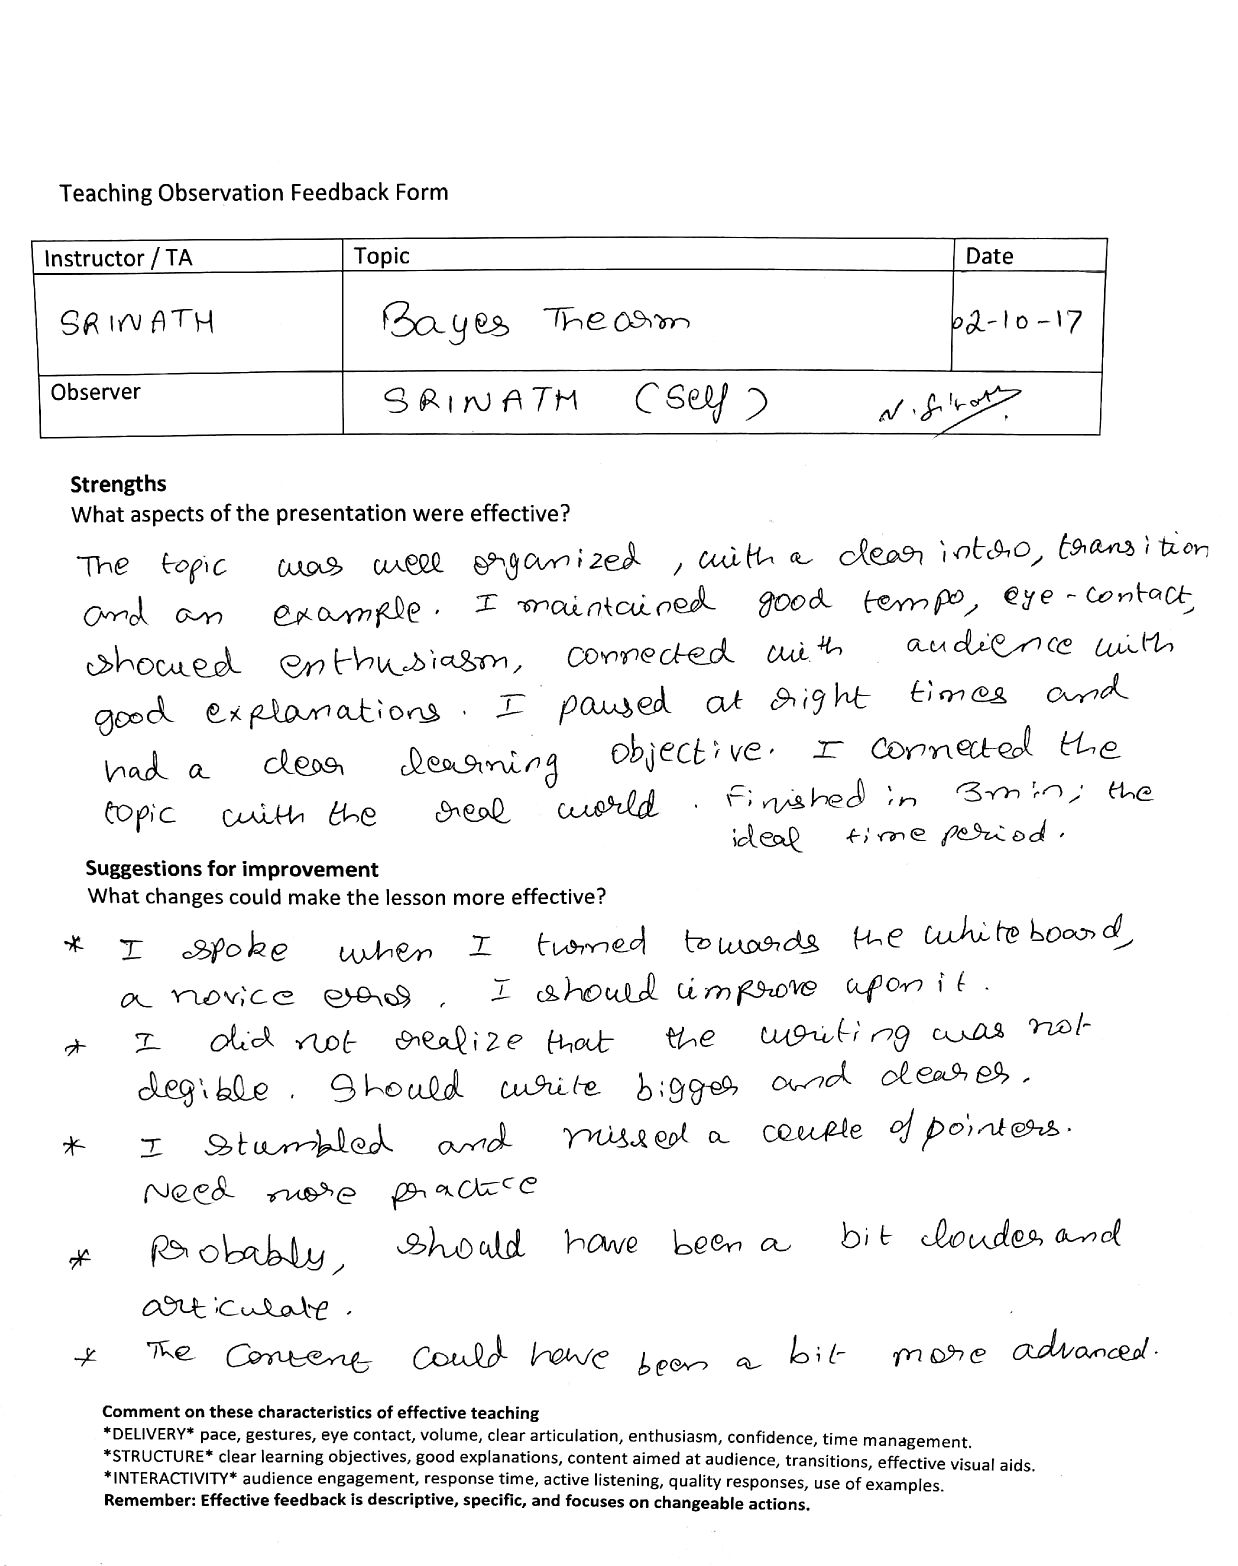 Teaching Observation Feedback Form
Instructor / TA Topic Date
SRINATH Bayes Theorm 02-10-17
Observer SRINATH (Self)
Strengths
What aspects of the presentation were effective?
The topic was well organized, with a clear intro, transition
and an example. I maintained good tempo, eye-contact,
showed enthusiasm, connected with audience with
good explanations. I paused at right times and
had a clear learning objective. I connected the
topic with the real world. Finished in 3min, the
ideal time period.
Suggestions for improvement
What changes could make the lesson more effective?
* I spoke when I turned towards the whiteboard,
a novice error. I should improve upon it.
* I did not realize that the writing was not
legible. Should write bigger and clearer.
* I stumbled and missed a couple of pointers.
Need more practice
* Probably, should have been a bit louder and
articulate.
* The content could have been a bit more advanced.
Comment on these characteristics of effective teaching
*DELIVERY* pace, gestures, eye contact, volume, clear articulation, enthusiasm, confidence, time management.
*STRUCTURE* clear learning objectives, good explanations, content aimed at audience, transitions, effective visual aids.
*INTERACTIVITY* audience engagement, response time, active listening, quality responses, use of examples.
Remember: Effective feedback is descriptive, specific, and focuses on changeable actions.